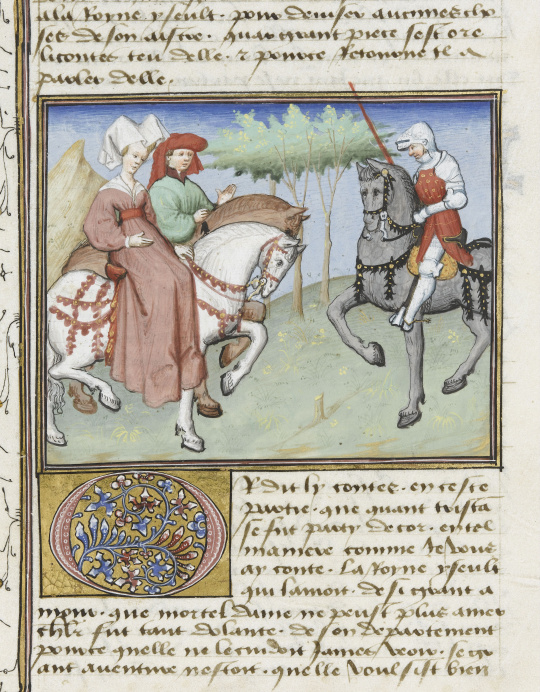 a la Royne yseult. pour deviser aucunes cho
ses de son aistre. quar grant piece sest ore
li contes teu delle. & pource Retourne il a
parler delle.
Or dit ly contes. en ceste
partie. que quant trista
se fut party de cor. en tel
maniere comme Je vous
ay conte. La Royne yseult
qui lamoit. de si grant a
mour. que mortel dame ne peust plus amer
chlr fut tant dolante. de son departement
pource quelle ne le cuidoit James veoir. se gr
ant aventure nestoit. quelle voulsist bien